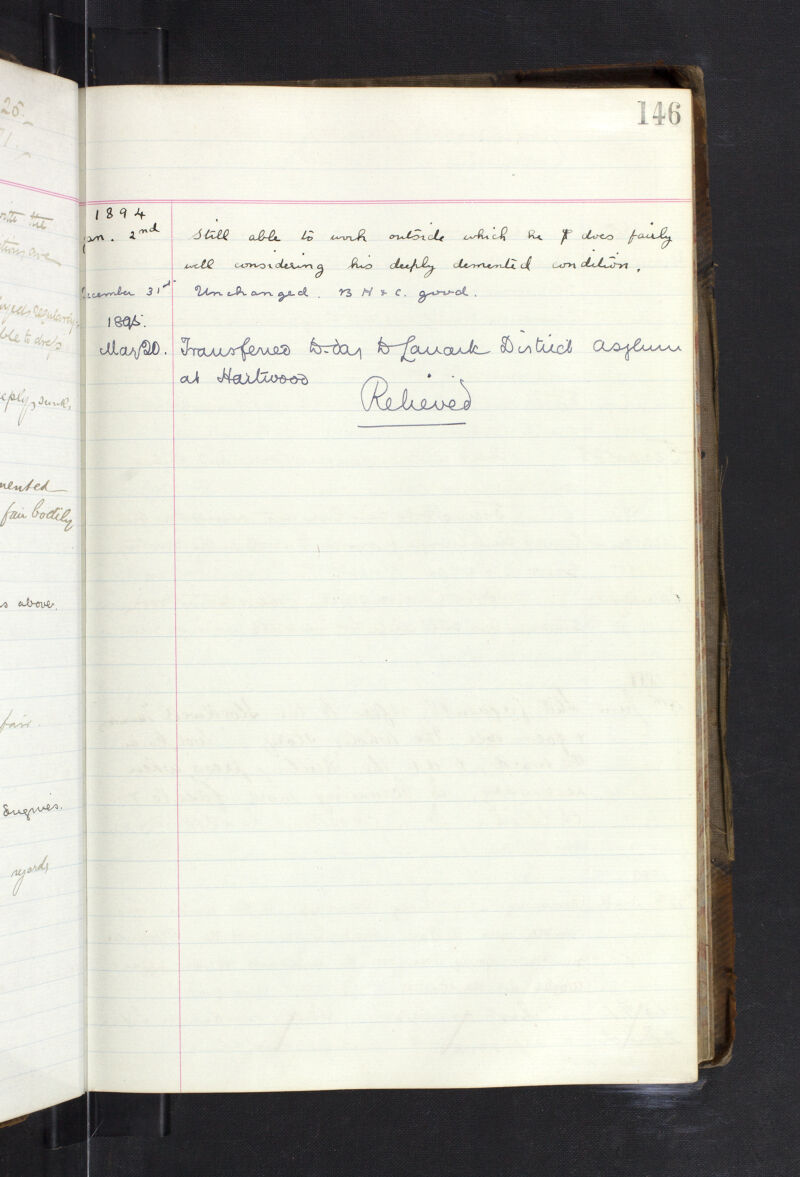 146
1894
Jan. 2nd Still able to work outside which he does fairly
well considering his deeply demented condition.
December 31st Unchanged. B H & C. good.
1895.
May 20. Transferred to-day to Lanark District Asylum
at Hartwood
Relieved
25
with the
able to dress
fair bodily
as above.
fair.
regards